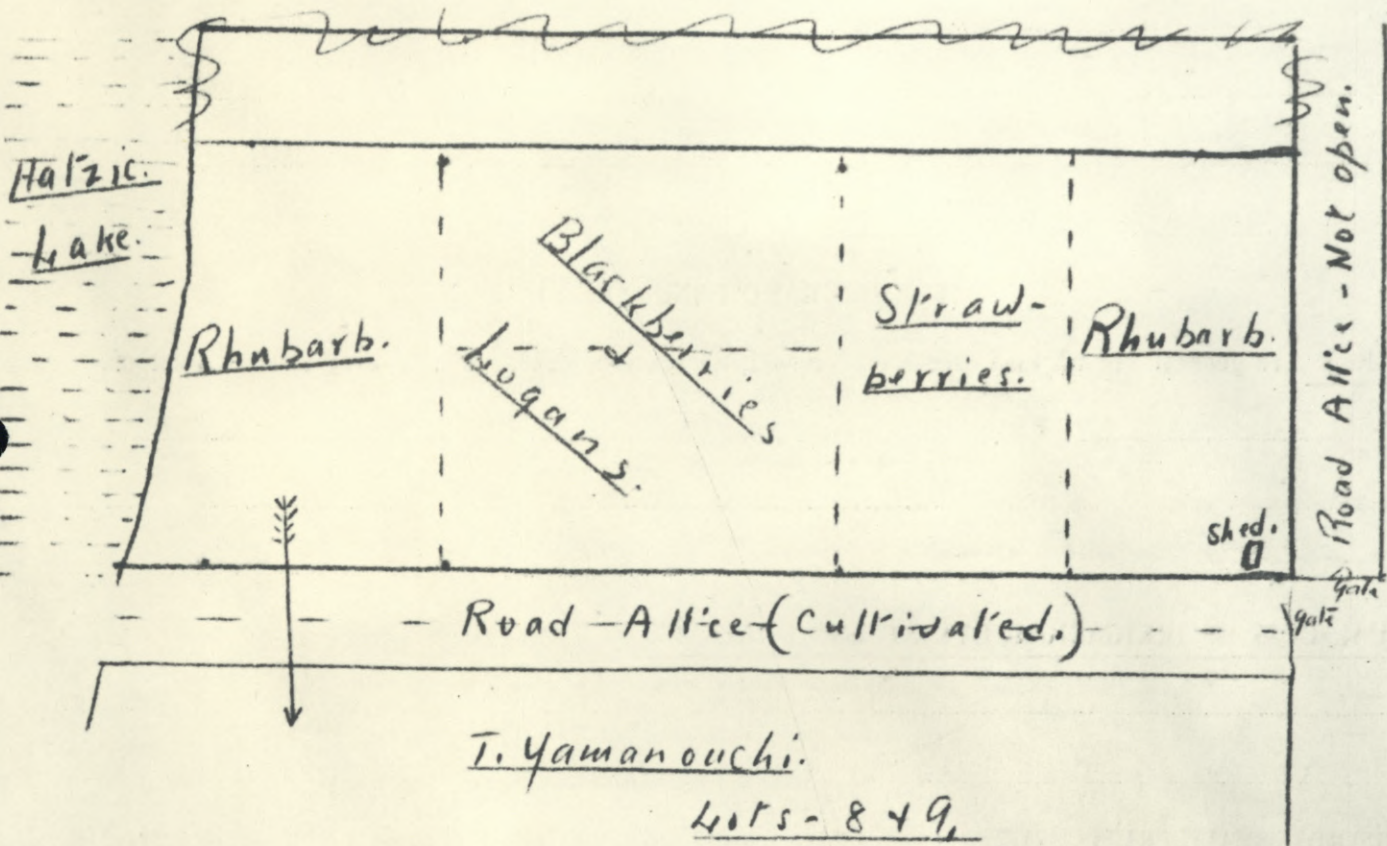 Hatzic.
Lake.
Rhubarb.
Blackberries
&
Logans.
Straw-
berries.
Rhubarb.
Shed.
Road All'ce - Not open.
gate
gate
Road - All'ce (Cultivated.)
T. Yamanouchi.
Lots - 8 & 9.